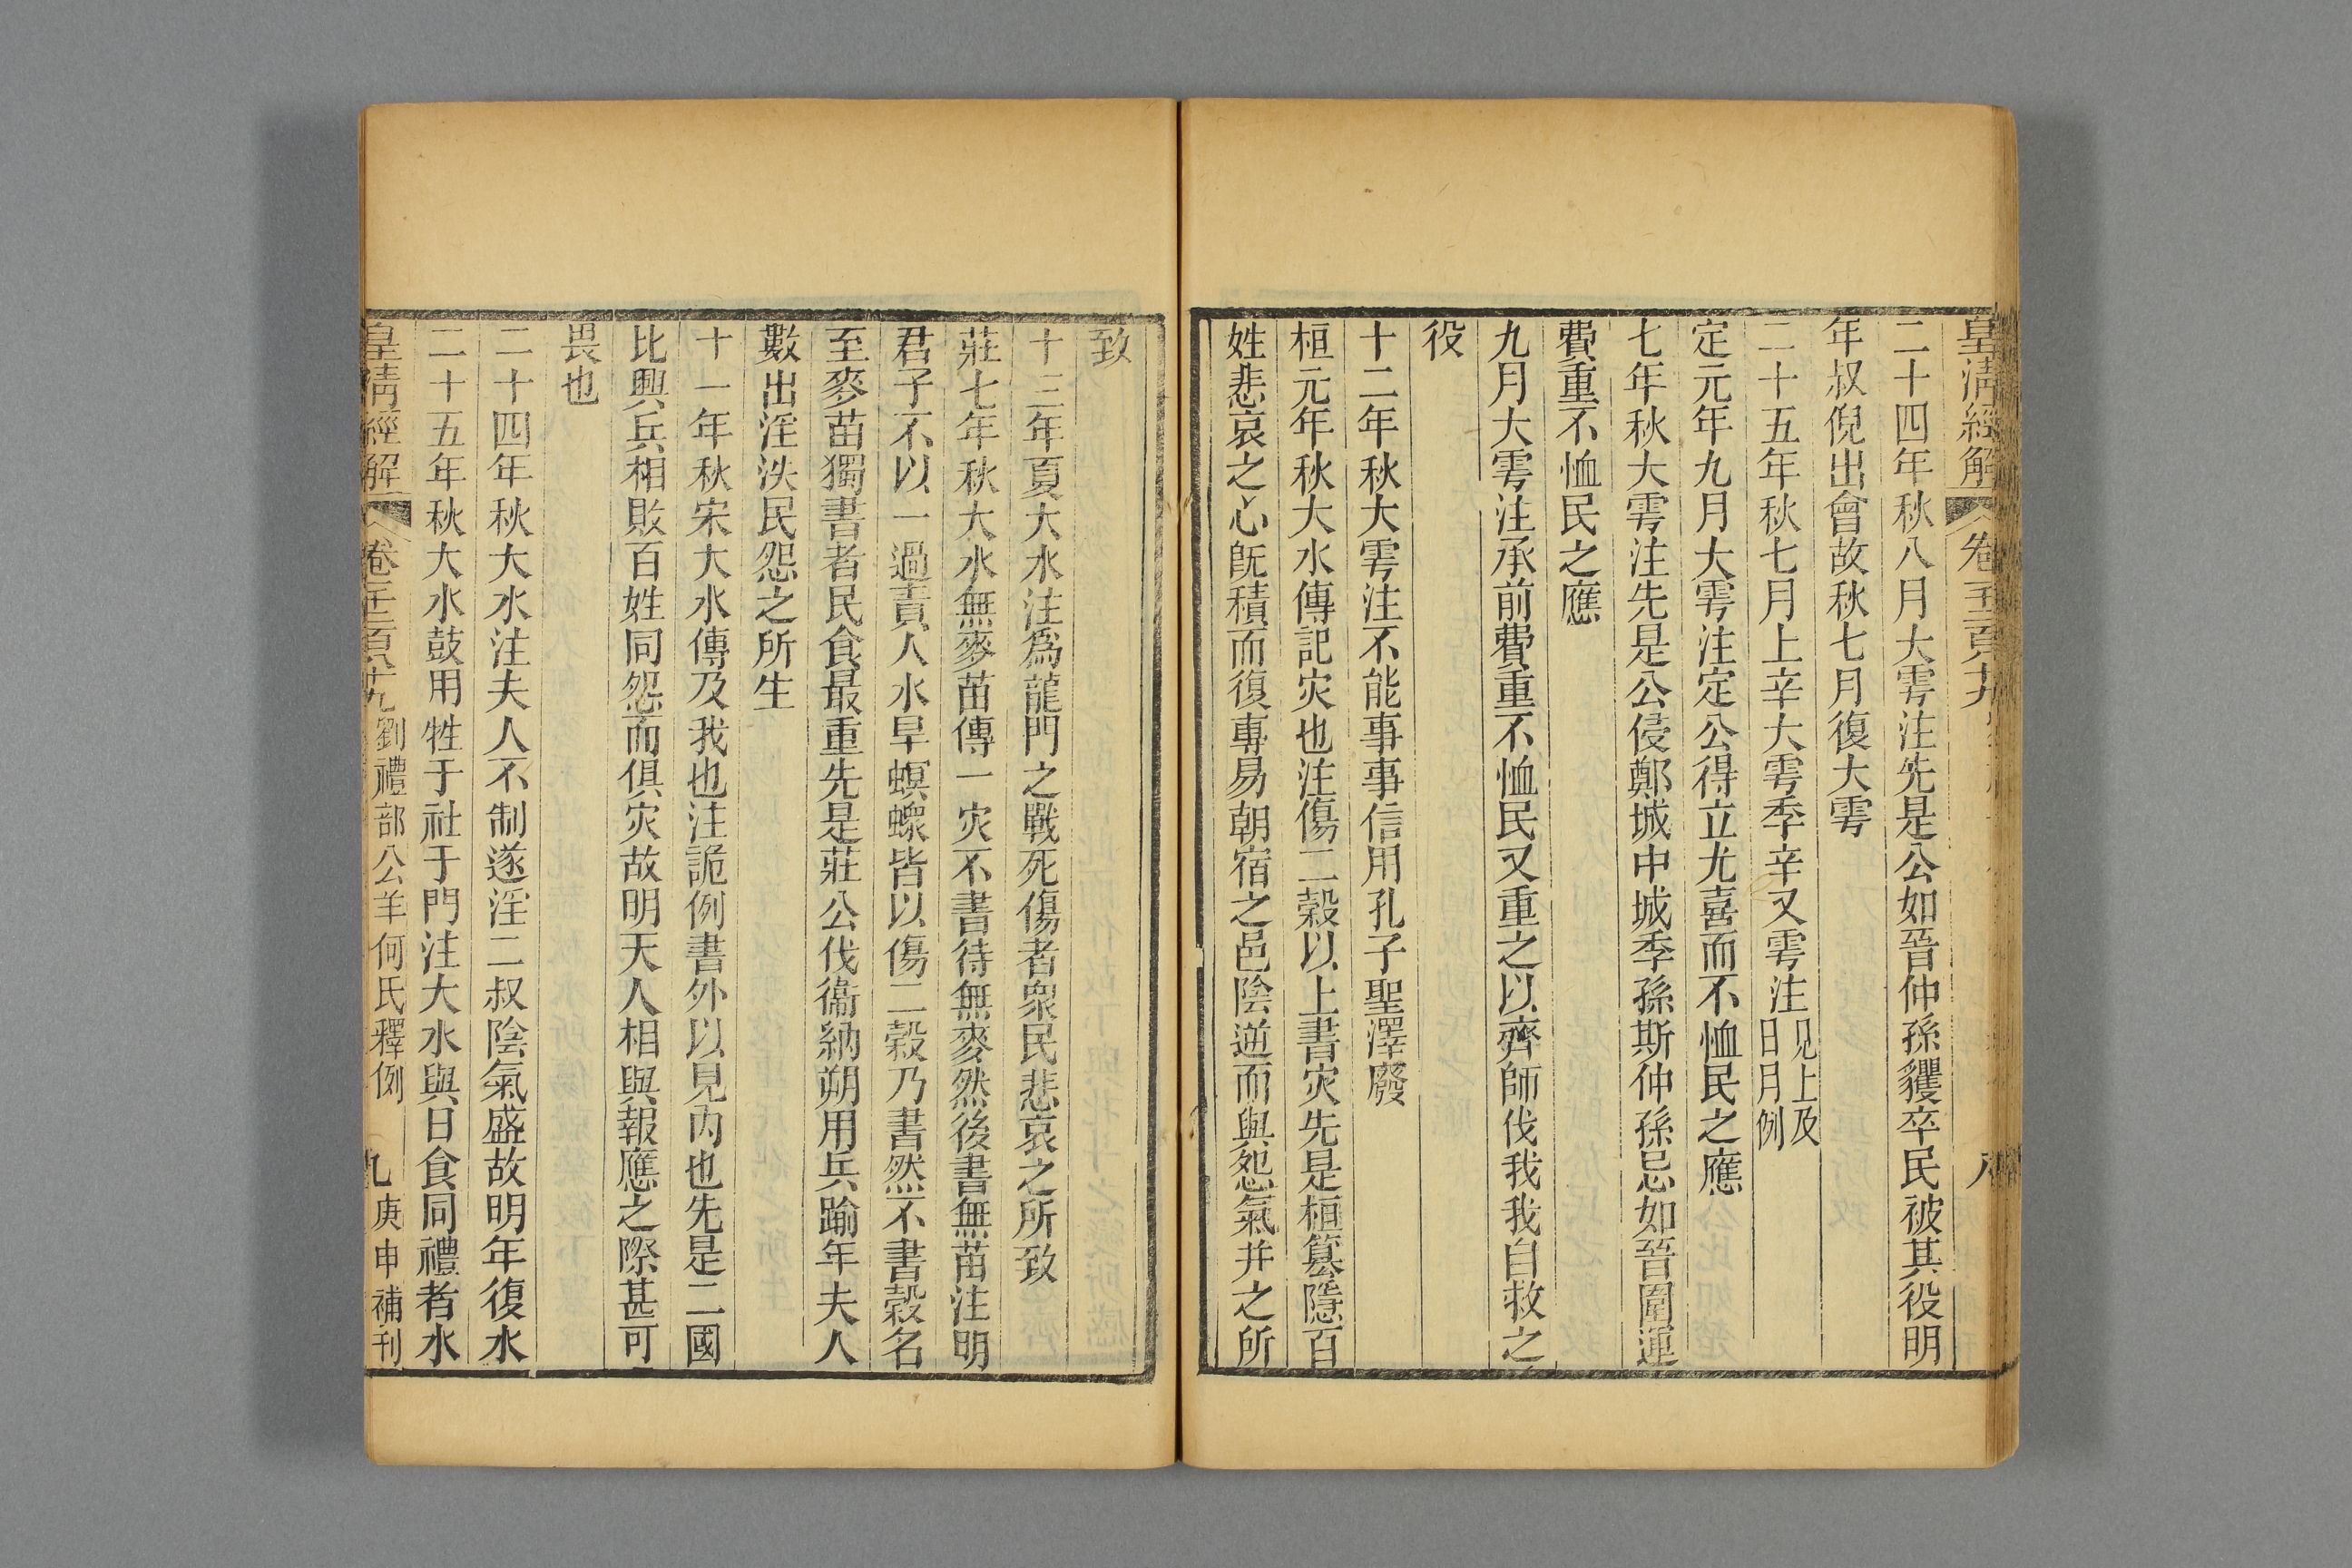 皇清經解 卷千二百八十九 八
二十四年秋八月大雩注先是公如晉仲孫貜卒民被其役明
年叔倪出會故秋七月復大雩
二十五年秋七月上辛大雩季辛又雩注見上及日月例
定元年九月大雩注定公得立尤喜而不恤民之應
七年秋大雩注先是公侵鄭城中城季孫斯仲孫忌如晉圍運
費重不恤民之應
九月大雩注承前費重不恤民又重之以齊師伐我我自救之
役
十二年秋大雩注不能事事信用孔子聖澤廢
桓元年秋大水傳記灾也注傷二穀以上書灾先是桓篡隱百
姓悲哀之心旣積而復專易朝宿之邑陰逆而與怨氣并之所
致
十三年夏大水注爲龍門之戰死傷者衆民悲哀之所致
莊七年秋大水無麥苗傳一灾不書待無麥然後書無苗注明
君子不以一過責人水旱螟螽皆以傷二穀乃書然不書穀名
至麥苗獨書者民食最重先是莊公伐衞納朔用兵踰年夫人
數出淫泆民怨之所生
十一年秋宋大水傳及我也注詭例書外以見內也先是二國
比興兵相敗百姓同怨而俱灾故明天人相與報應之際甚可
畏也
二十四年秋大水注夫人不制遂淫二叔陰氣盛故明年復水
二十五年秋大水鼓用牲于社于門注大水與日食同禮者水
皇清經解 卷千二百八十九 劉禮部公羊何氏釋例 九 庚申補刊